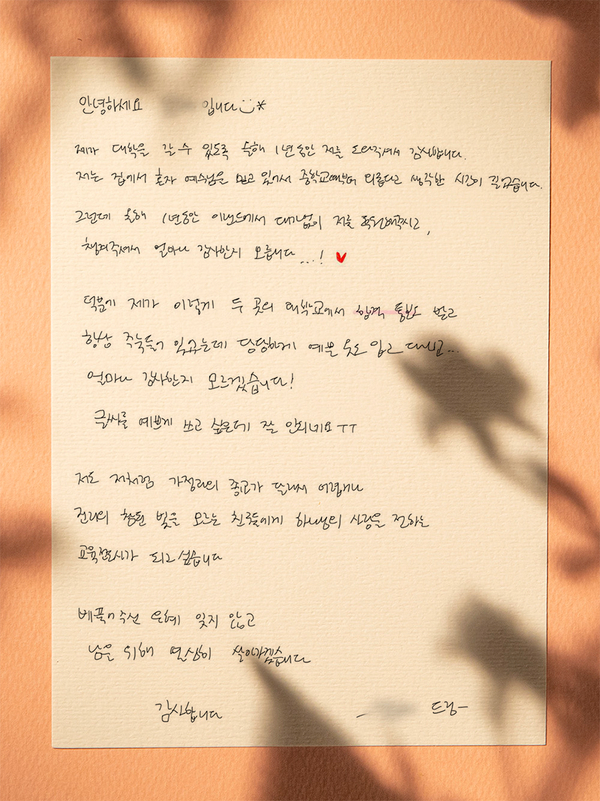 안녕하세요 입니다
제가 대학을 갈 수 있도록 올해 1년동안 저를 도와주셔서 감사합니다.
저는 집에서 혼자 예수님을 믿고 있어서 중학교때부터 외롭다고 생각한 시간이 길었습니다.
그런데 올해 1년동안 이랜드에서 대기업이 저를 후원해주시고,
챙겨주셔서 얼마나 감사한지 모릅니다...!
덕분에 제가 이렇게 두 곳의 대학교에서 합격 통보 받고
항상 주눅들어 있었는데 당당하게 예쁜 옷도 입고 다니고..
얼마나 감사한지 모르겠습니다!
글씨를 예쁘게 쓰고 싶은데 잘 안되네요ㅜㅜ
저도 저처럼 가정과의 종교가 달라서 어렵거나
진리의 참된 빛을 모르는 친구들에게 하나님의 사랑을 전하는
교육 가 되고 싶습니다
베풀어주신 은혜 잊지 않고
남을 위해 열심히 살아가겠습니다
감사합니다
드림-